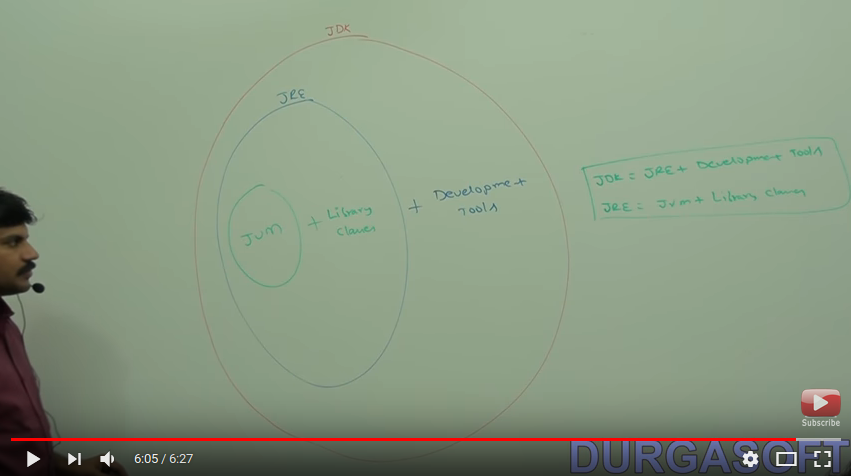 JDK
JRE
JVM
+ Library
classes
+ Development
Tools
JDK = JRE + Development Tools
JRE = JVM + Library classes
Subscribe
6:05 / 6:27
DURGASOFT